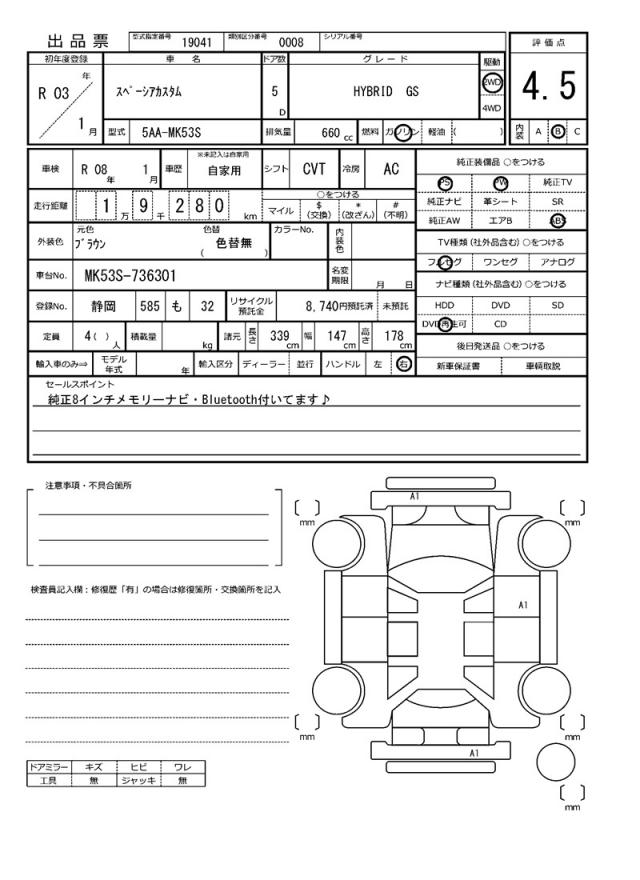 出品票 型式指定番号 19041 類別区分番号 0008 シリアル番号
評価点
4.5
内装 A B C
初年度登録 車名 ドア数 グレード 駆動
R 03 年 1 月
スペーシアカスタム 5 D HYBRID GS 2WD 4WD
型式 5AA-MK53S 排気量 660 cc 燃料 ガソリン 軽油 ( )
車検 R 08 年 1 月 車歴 ※未記入は自家用 自家用 シフト CVT 冷房 AC
走行距離 1 万 9 千 2 8 0 km ○をつける マイル $ (交換) * (改ざん) # (不明)
外装色 元色 ブラウン 色替 ( 色替無 ) カラーNo. 内装色
車台No. MK53S-736301 名変期限 月 日
登録No. 静岡 585 も 32 リサイクル預託金 8,740円預託済 未預託
定員 4( ) 人 積載量 kg 諸元 長さ 339 cm 幅 147 cm 高さ 178 cm
輸入車のみ⇒ モデル年式 年 輸入区分 ディーラー 並行 ハンドル 左 右
純正装備品 ○をつける
PS PW 純正TV
純正ナビ 革シート SR
純正AW エアB ABS
TV種類(社外品含む)○をつける
フルセグ ワンセグ アナログ
ナビ種類(社外品含む)○をつける
HDD DVD SD
DVD再生可 CD
後日発送品 ○をつける
新車保証書 車輌取説
セールスポイント
純正8インチメモリーナビ・Bluetooth付いてます♪
注意事項・不具合箇所
検査員記入欄:修復歴「有」の場合は修復箇所・交換箇所を記入
ドアミラー キズ ヒビ ワレ
工具 無 ジャッキ 無
A1
mm
mm
A1
mm
mm
A1
mm